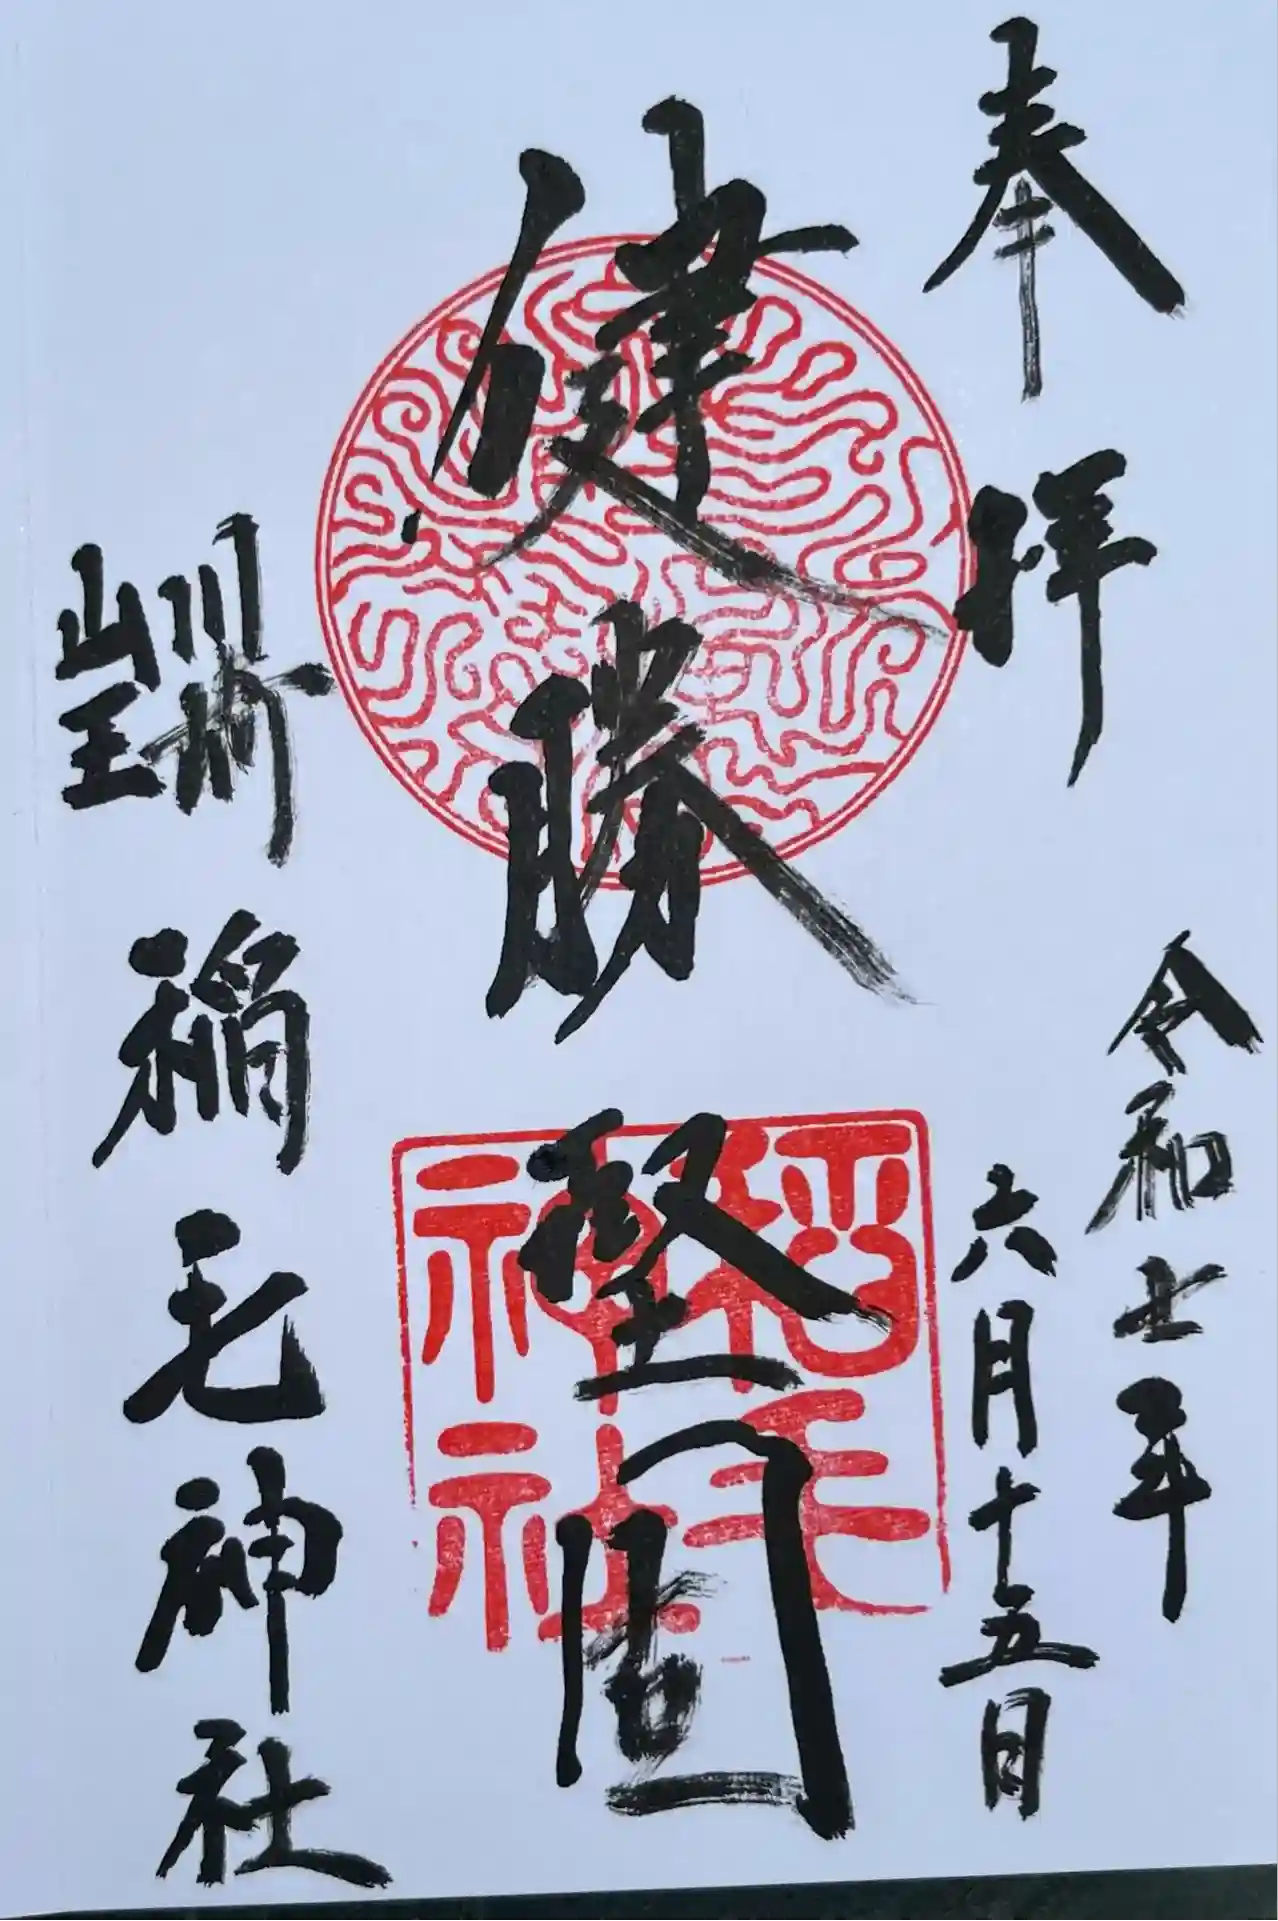 奉拝
令和七年
六月十五日
健勝堅固
川崎
山王
稲毛神社
稲毛
神社